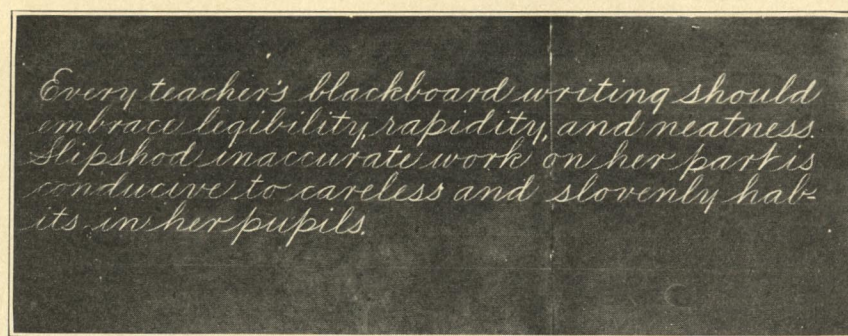 Every teacher's blackboard writing should
embrace legibility, rapidity, and neatness.
Slipshod inaccurate work on her part is
conducive to careless and slovenly hab-
its in her pupils.